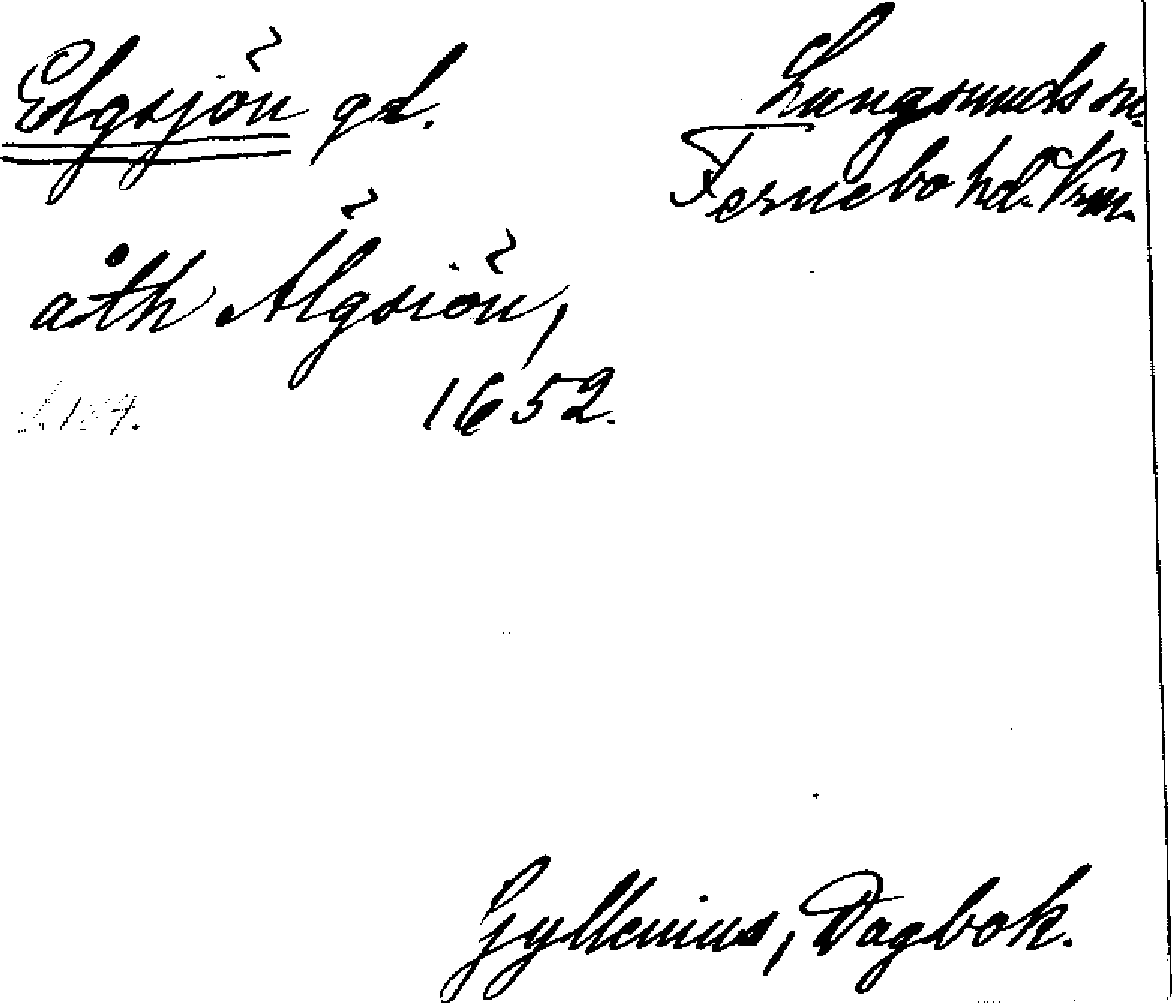 Elgsjön gd.
Lungsunds sn.
Fernebo hd. Vrm.
åth Älgsiön,
1652.
Gyllenius, Dagbok.